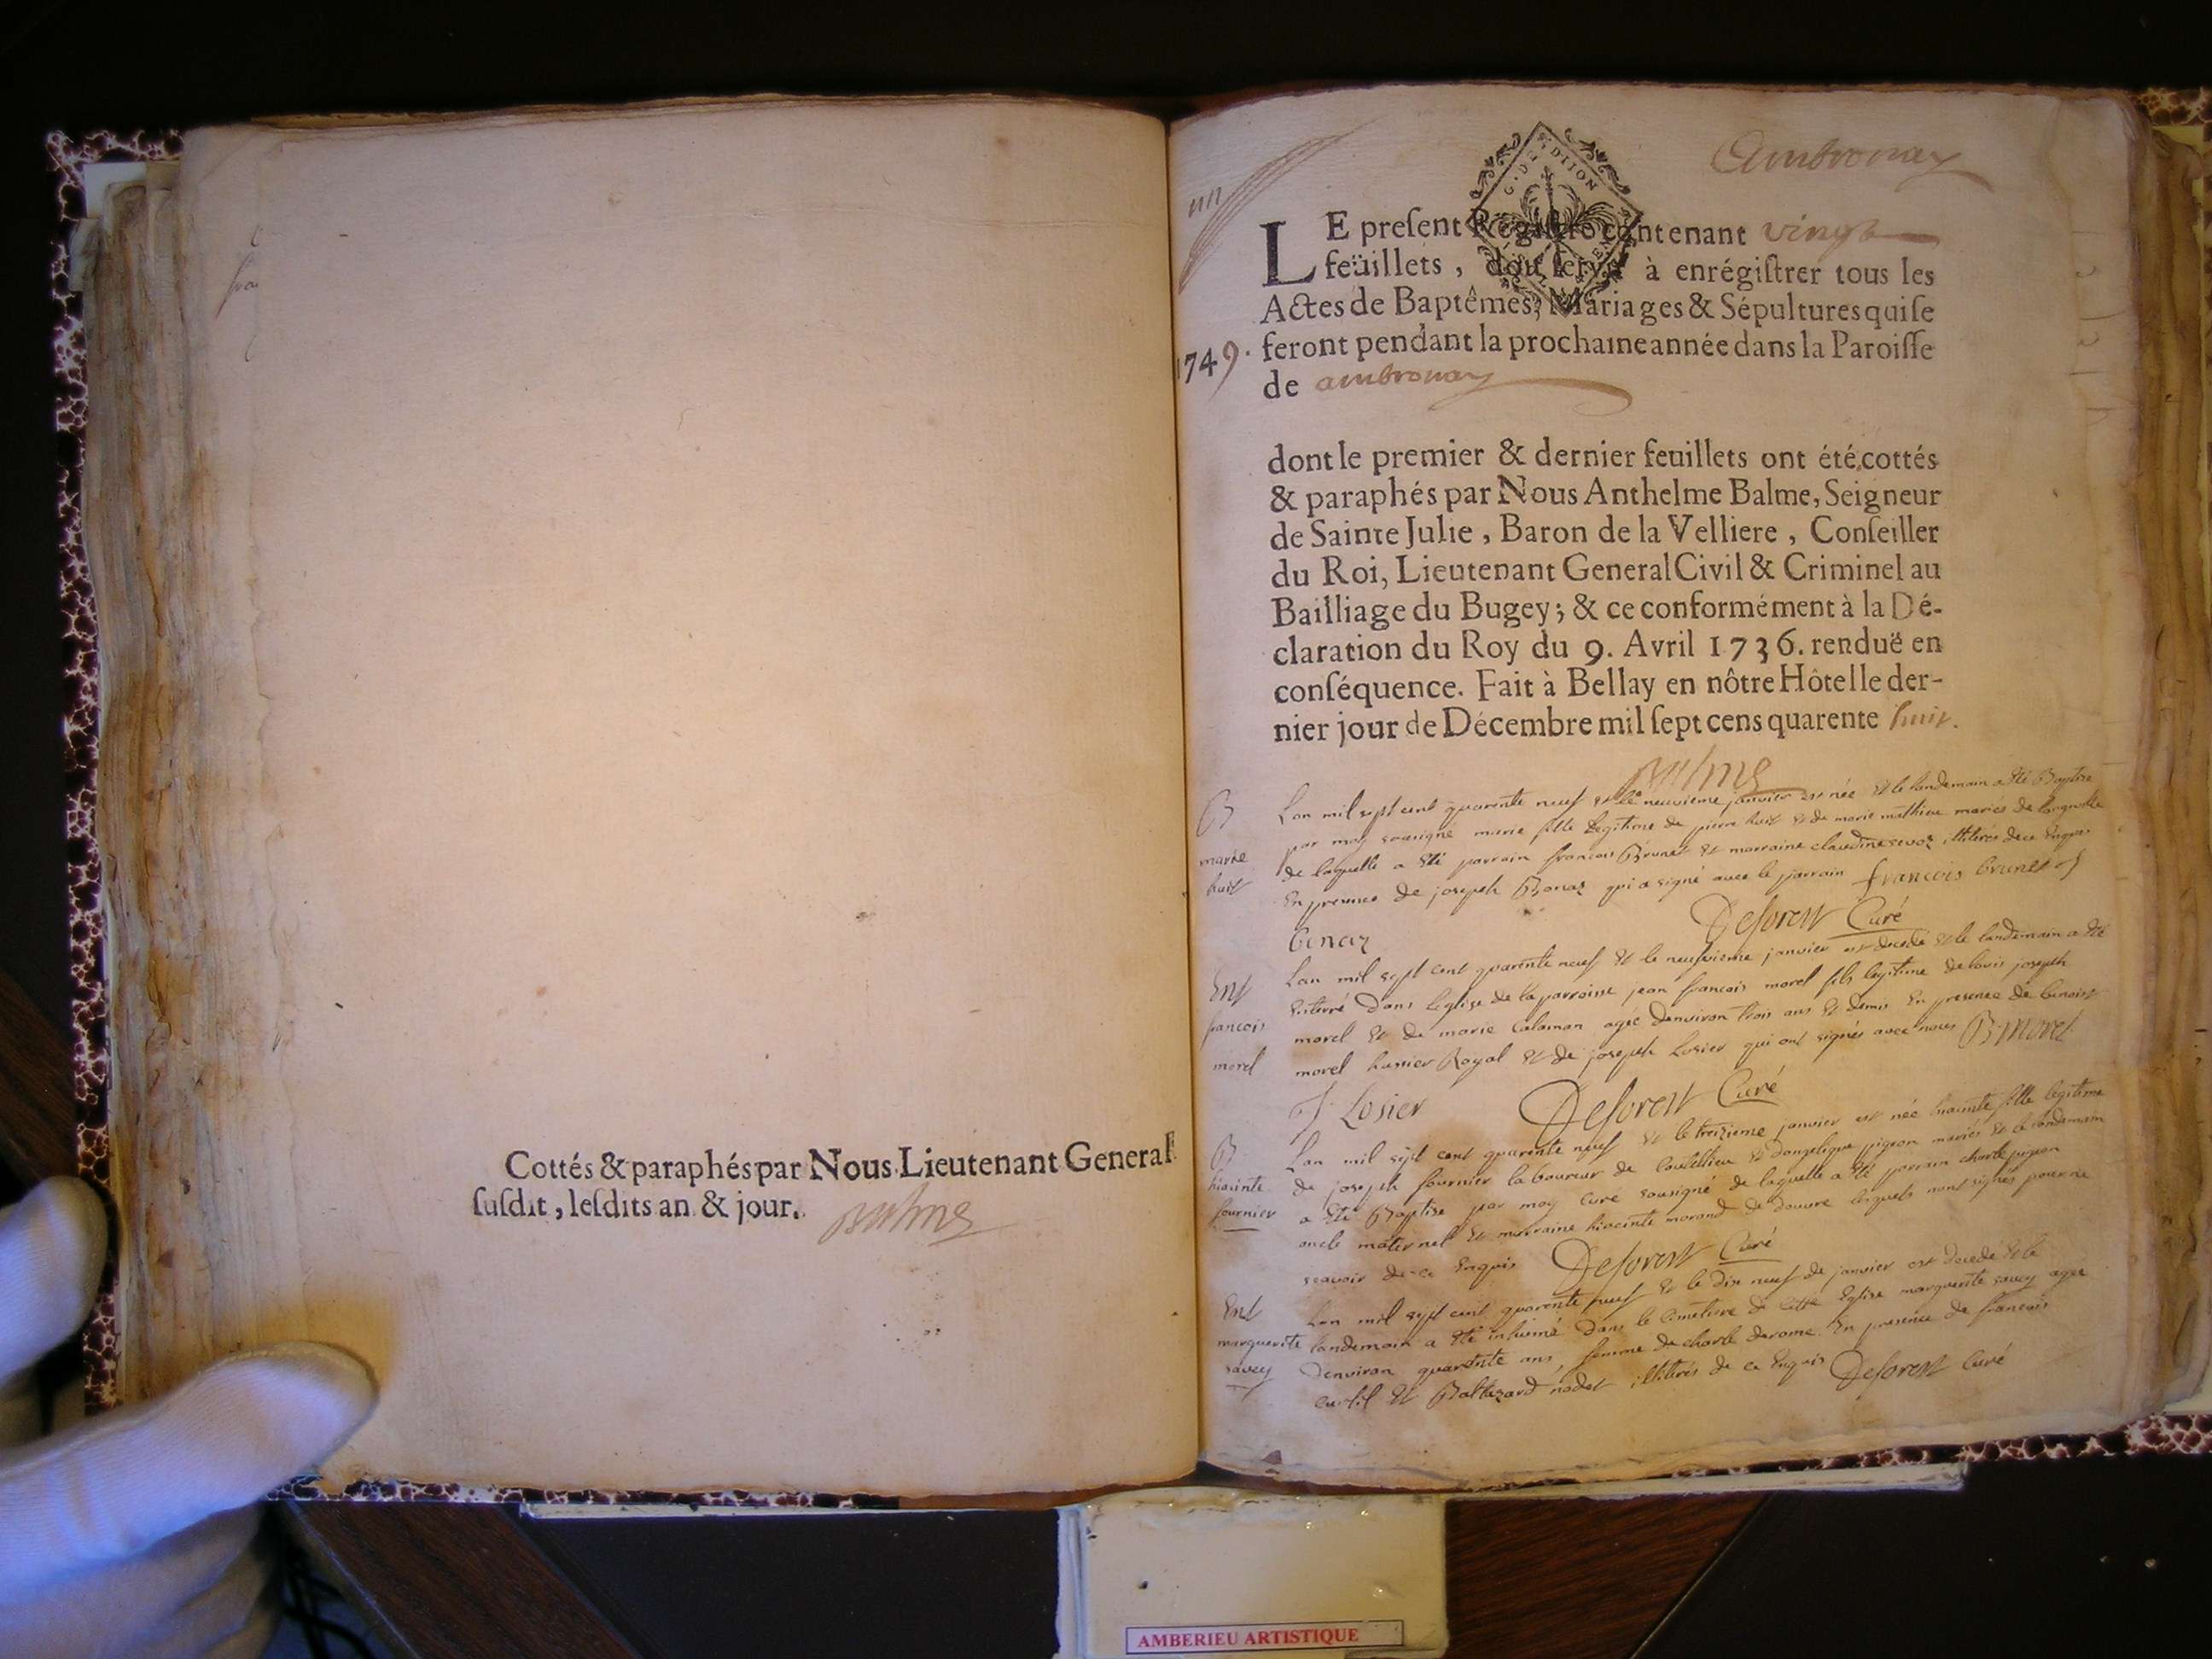 Cottés & paraphés par Nous Lieutenant General
susdit, lesdits an & jour. Balme
un
Ambronay
G. DE DIJON
LE present Régistre contenant vingt
feüillets, doit servir à enrégistrer tous les
Actes de Baptêmes, Mariages & Sépultures qui se
1749. feront pendant la prochaine année dans la Paroisse
de ambronay
dont le premier & dernier feuillets ont été cottés
& paraphés par Nous Anthelme Balme, Seigneur
de Sainte Julie, Baron de la Velliere, Conseiller
du Roi, Lieutenant General Civil & Criminel au
Bailliage du Bugey; & ce conformément à la Dé-
claration du Roy du 9. Avril 1736. renduë en
conséquence. Fait à Bellay en nôtre Hôtel le der-
nier jour de Décembre mil sept cens quarente huit.
Balme
B
marie
huit
Lan mil sept cent quarente neuf et le neuvieme janvier est née et le landemain a été Baptisée
par moy sousigné marie fille legitime de pierre huit et de marie mathieu mariés de
de laquelle a été parrain francois Brunet et marraine claudine illiterés de ce Enquis
En presence de joseph Bonaz qui a signé avec le parrain francois brunet J
bonaz Deforest Curé
Ent
francois
morel
Lan mil sept cent quarente neuf et le neufvieme janvier est decedé et le landemain a été
Enterré dans leglise de la parroisse jean francois morel fils legitime de louis joseph
morel et de marie Calaman agée denviron trois ans et demis En presence de benoist
morel hussier Royal et de joseph Losier qui ont signés avec nous B Morel
J Losier Deforest Curé
B
hiacinte
fournier
Lan mil sept cent quarente neuf et le treizieme janvier est née hiacinte fille legitime
de joseph fournier laboureur de et dangelique pigeon mariés et le landemain
a été Baptisé par moy Curé sousigné de laquelle a été parrain charle pigeon
oncle maternel et marraine hiacinte morand de douvre lesquels nont signés pour ne
scavoir de ce Enquis Deforest Curé
Ent
marguerite
savey
Lan mil sept cent quarente neuf et le dix neuf de janvier est decedé et le
landemain a été inhumé dans le cimetiere de cette Eglise marguerite savey agée
denviron quarente ans, femme de charle derome En presence de francois
et Baltazard nodet illiterés de ce Enquis Deforest Curé
AMBERIEU ARTISTIQUE